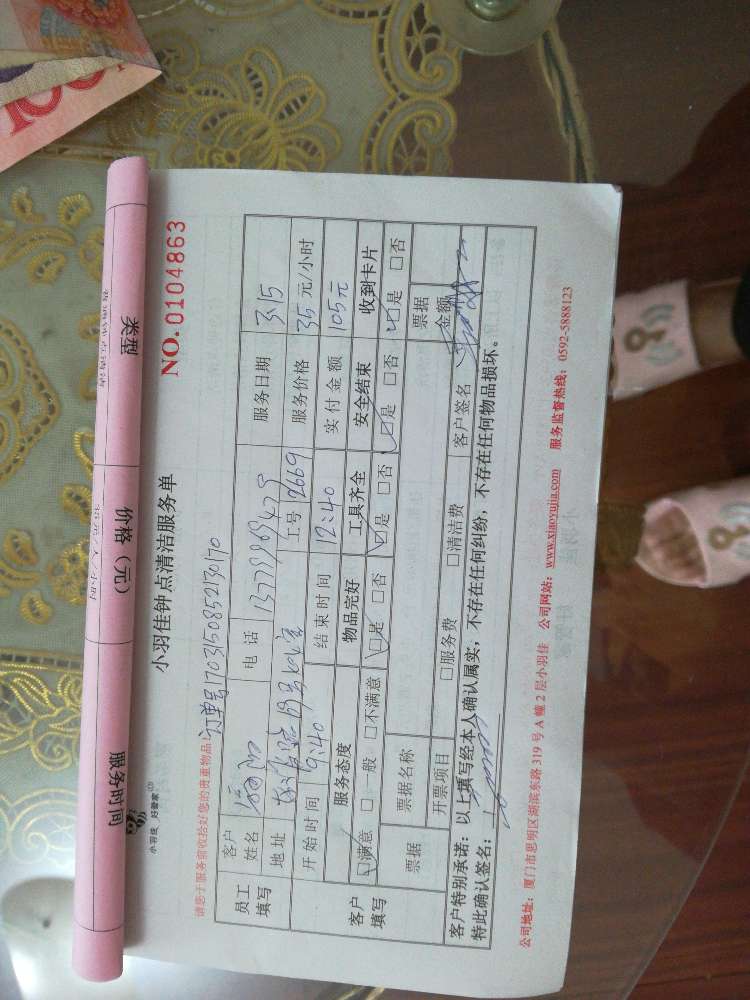 类型
价格（元）
服务时间
小羽佳 好管家
小羽佳钟点清洁服务单
NO. 0104863
请您于服务前收拾好您的贵重物品！
订单号170315085213017 0
员工填写
客户姓名
电话
服务日期 3.15
地址
工号 2669
服务价格 35 元/小时
开始时间 9:40
结束时间 12:40
实付金额 105元
客户填写
服务态度 物品完好 工具齐全 安全结束 收到卡片
☑满意 □一般 □不满意 ☑是 □否 ☑是 □否 ☑是 □否 ☑是 □否
票据 票据名称 票据金额
开票项目 □服务费 □清洁费 客户签名
客户特别承诺：以上填写经本人确认属实，不存在任何纠纷，不存在任何物品损坏。
特此确认签名：
公司地址：厦门市思明区湖滨东路 319 号 A 幢 2 层小羽佳 公司网站：www.xiaoyujia.com 服务监督热线：0592-5888123